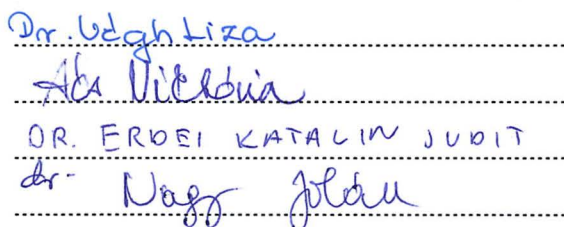 Dr. Végh Liza
Ács Viktória
DR. ERDEI KATALIN JUDIT
dr. Nagy Zoltán